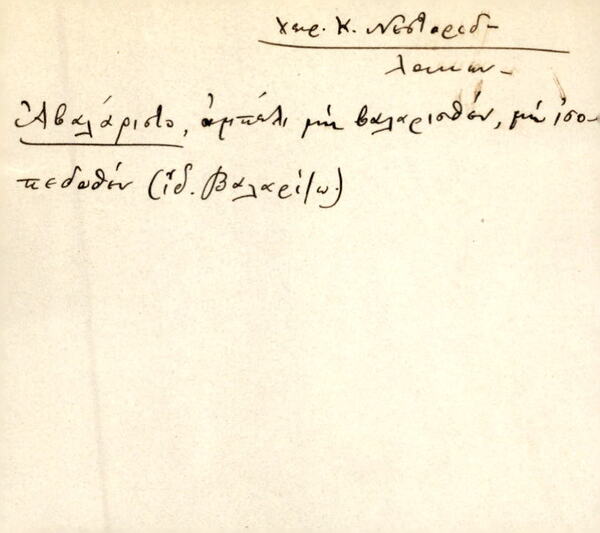 χειρ. Κ. Νεσtορίδ-
Λακων-
Ἀβαλάριστο, ἀμπέλι μὴ βαλαρισθέν, μὴ ἰσο-
πεδωθέν (ἰδ. βαλαρίζω)